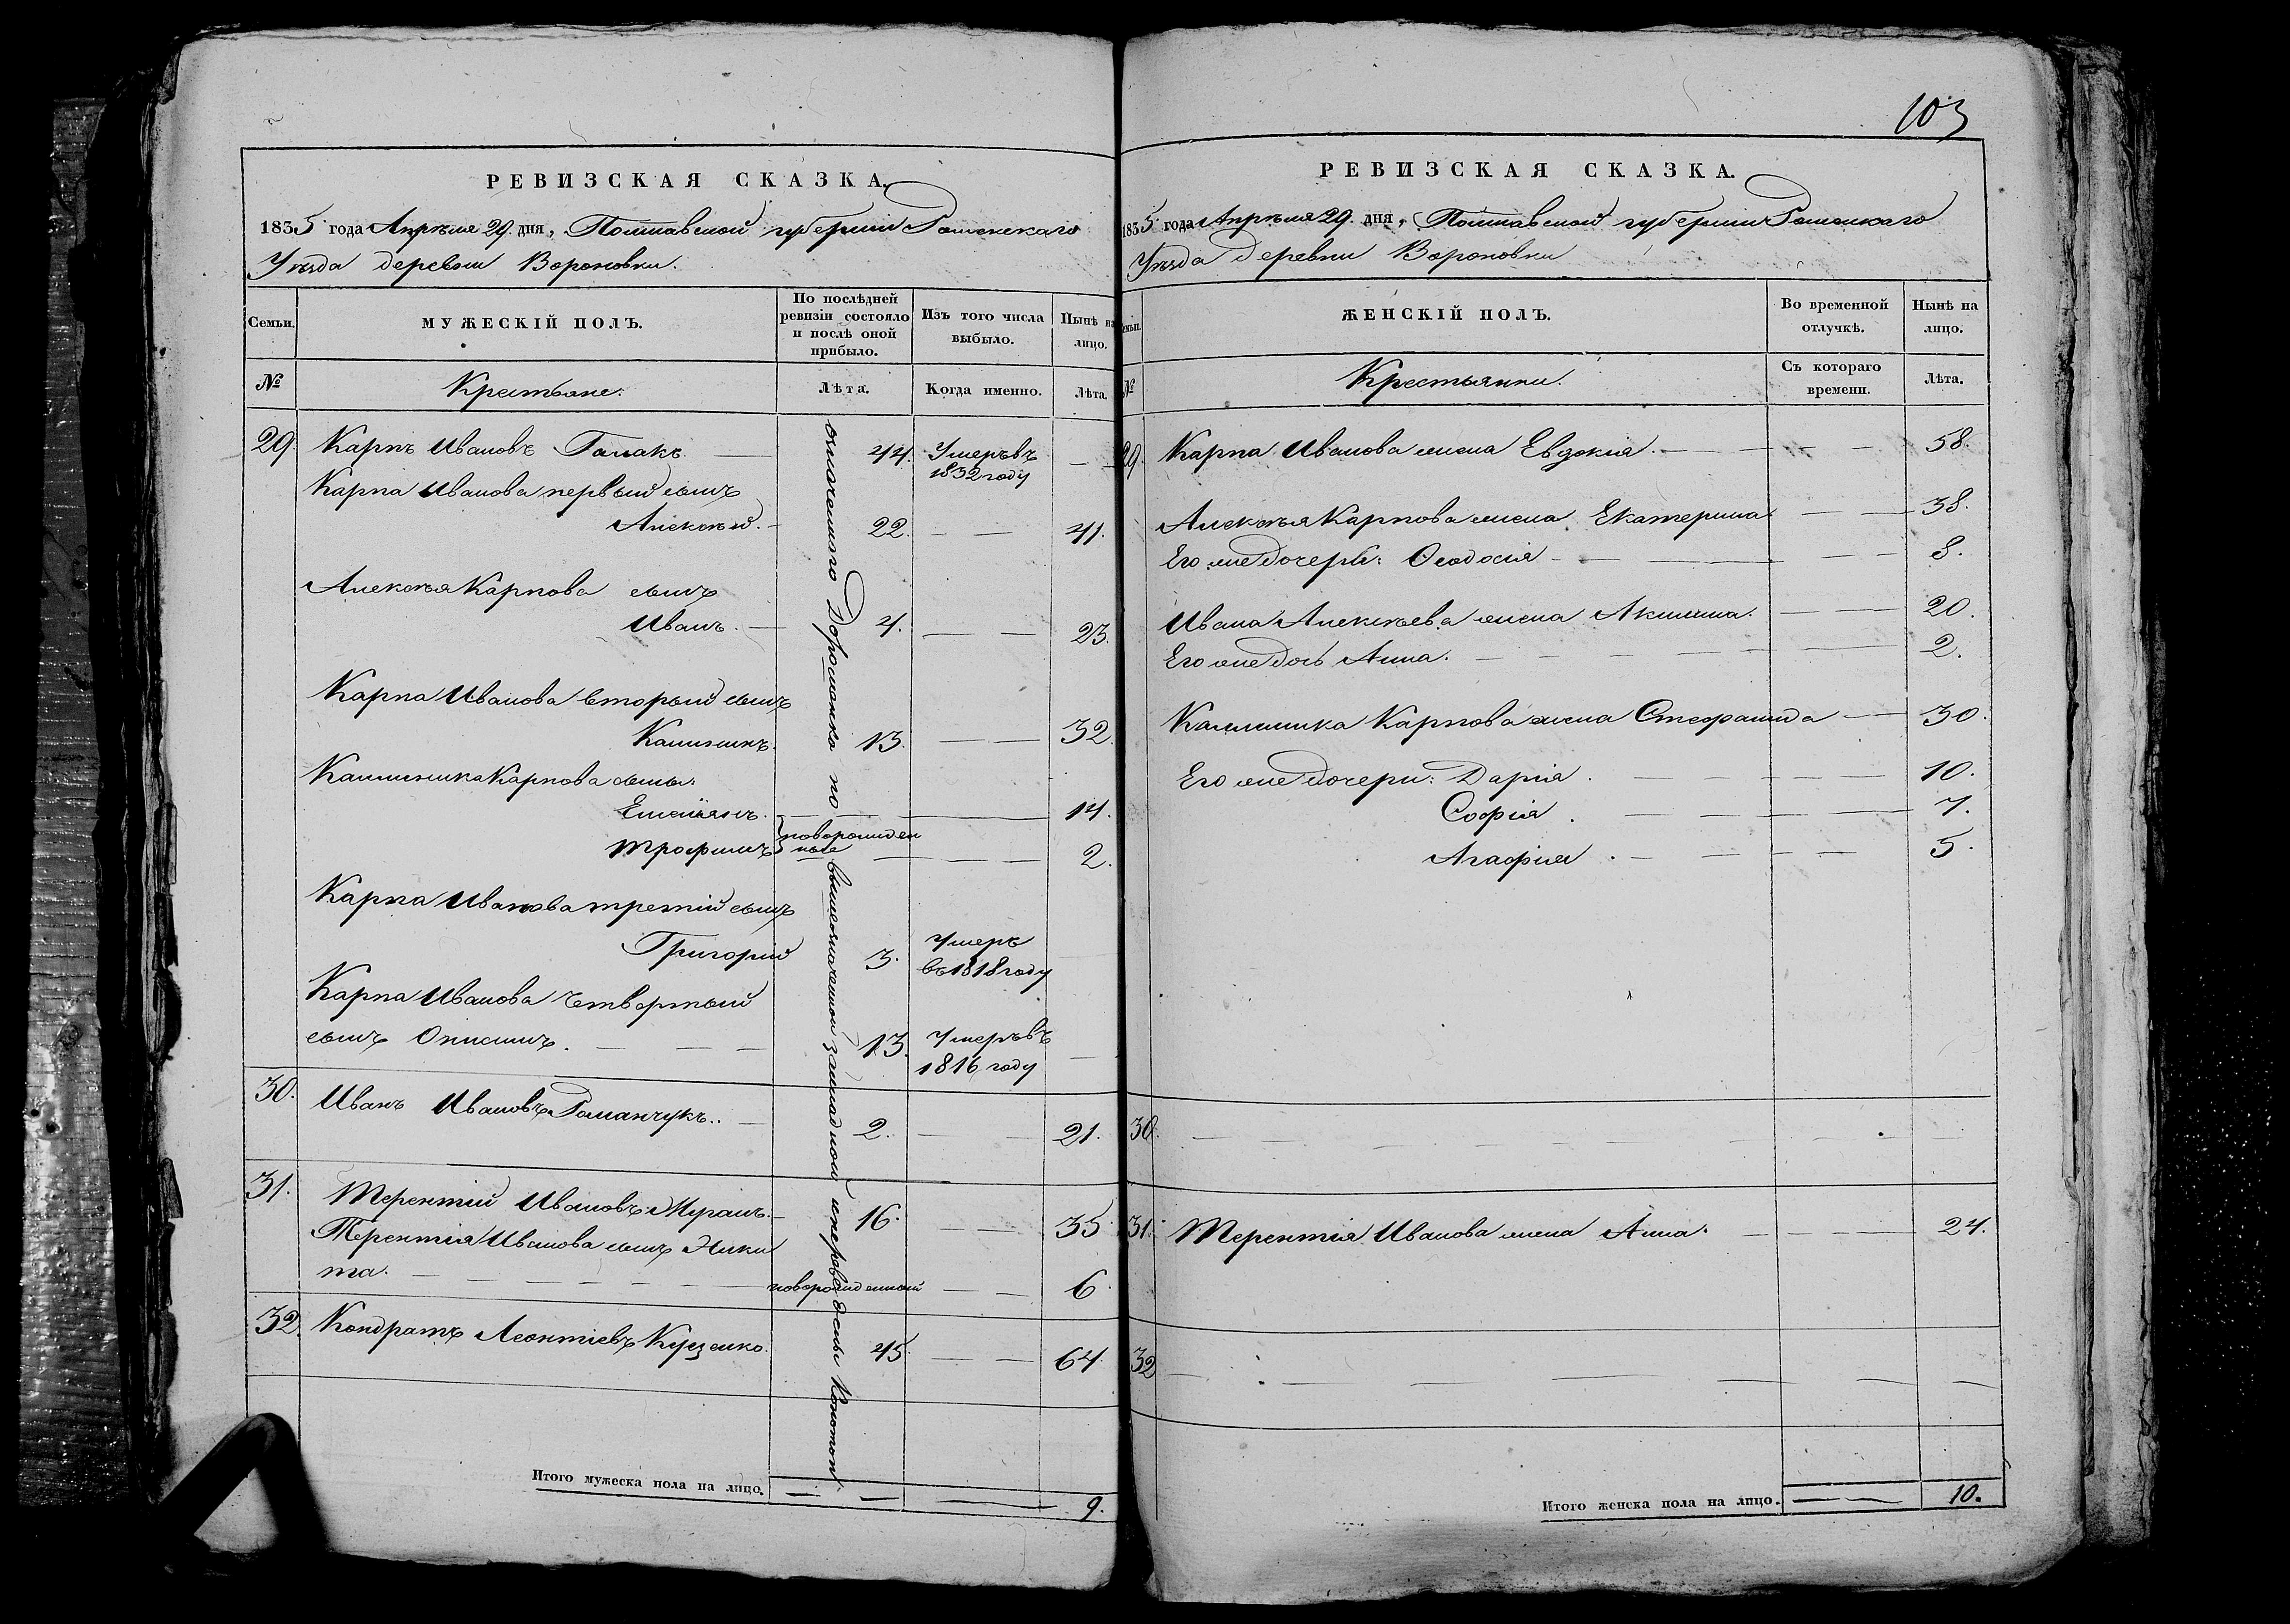 РЕВИЗСКАЯ СКАЗКА.
1835 года Апрѣля 29 дня, Полтавской губерніи Роменскаго
Уѣзда деревни Вороновки.
Семьи.
МУЖЕСКІЙ ПОЛЪ.
По послѣдней ревизіи состояло и послѣ оной прибыло.
Изъ того числа выбыло.
Нынѣ на лицо.
№
Крестьяне.
Лѣта.
Когда именно.
Лѣта.
29. Карпъ Ивановъ 44. Умеръ въ 1832 году
Карпа Иванова первый сынъ
Алексѣй. 22. 41.
Алексѣя Карпова сынъ
Иванъ. 4. 23.
Карпа Иванова вторый сынъ
Калиникъ. 13. 32.
Калиника Карпова сыны:
Емеліянъ. 14.
Трофимъ новорожденные 2.
Карпа Иванова третій сынъ
Григорій 3. Умеръ въ 1818 году
Карпа Иванова четвертый
сынъ 13. Умеръ въ 1816 году
30. Иванъ Ивановъ Романчукъ. 2. 21.
31. Терентій Ивановъ 16. 35.
Терентія Иванова сынъ Ники
та. новорожденный 6.
32. Кондратъ Леонтіевъ Куценко. 45. 64.
Доросанка по вышеозначенной закладной и переводъ
Итого мужеска пола на лицо. 9.
103
РЕВИЗСКАЯ СКАЗКА.
1835 года Апрѣля 29 дня, Полтавской губерніи Роменскаго
Уѣзда деревни Вороновки
Семьи.
ЖЕНСКІЙ ПОЛЪ.
Во временной отлучкѣ.
Нынѣ на лицо.
№
Крестьянки.
Съ котораго времени.
Лѣта.
29. Карпа Иванова жена Евдокія. 58.
Алексѣя Карпова жена Екатерина 38.
Его же дочери: Ѳеодосія 8.
Ивана Алексѣева жена Акилина. 20.
Его же дочь Анна. 2.
Калиника Карпова жена Стефанида 30.
Его же дочери: Дарія. 10.
Софія. 7.
Агафія. 5.
30.
31. Терентія Иванова жена Анна. 24.
32
Итого женска пола на лицо. 10.